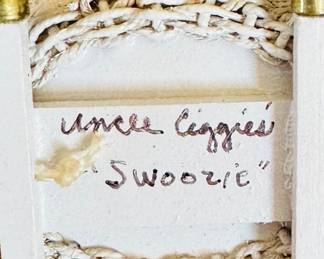 Uncle Ciggies'
"Swoozie"